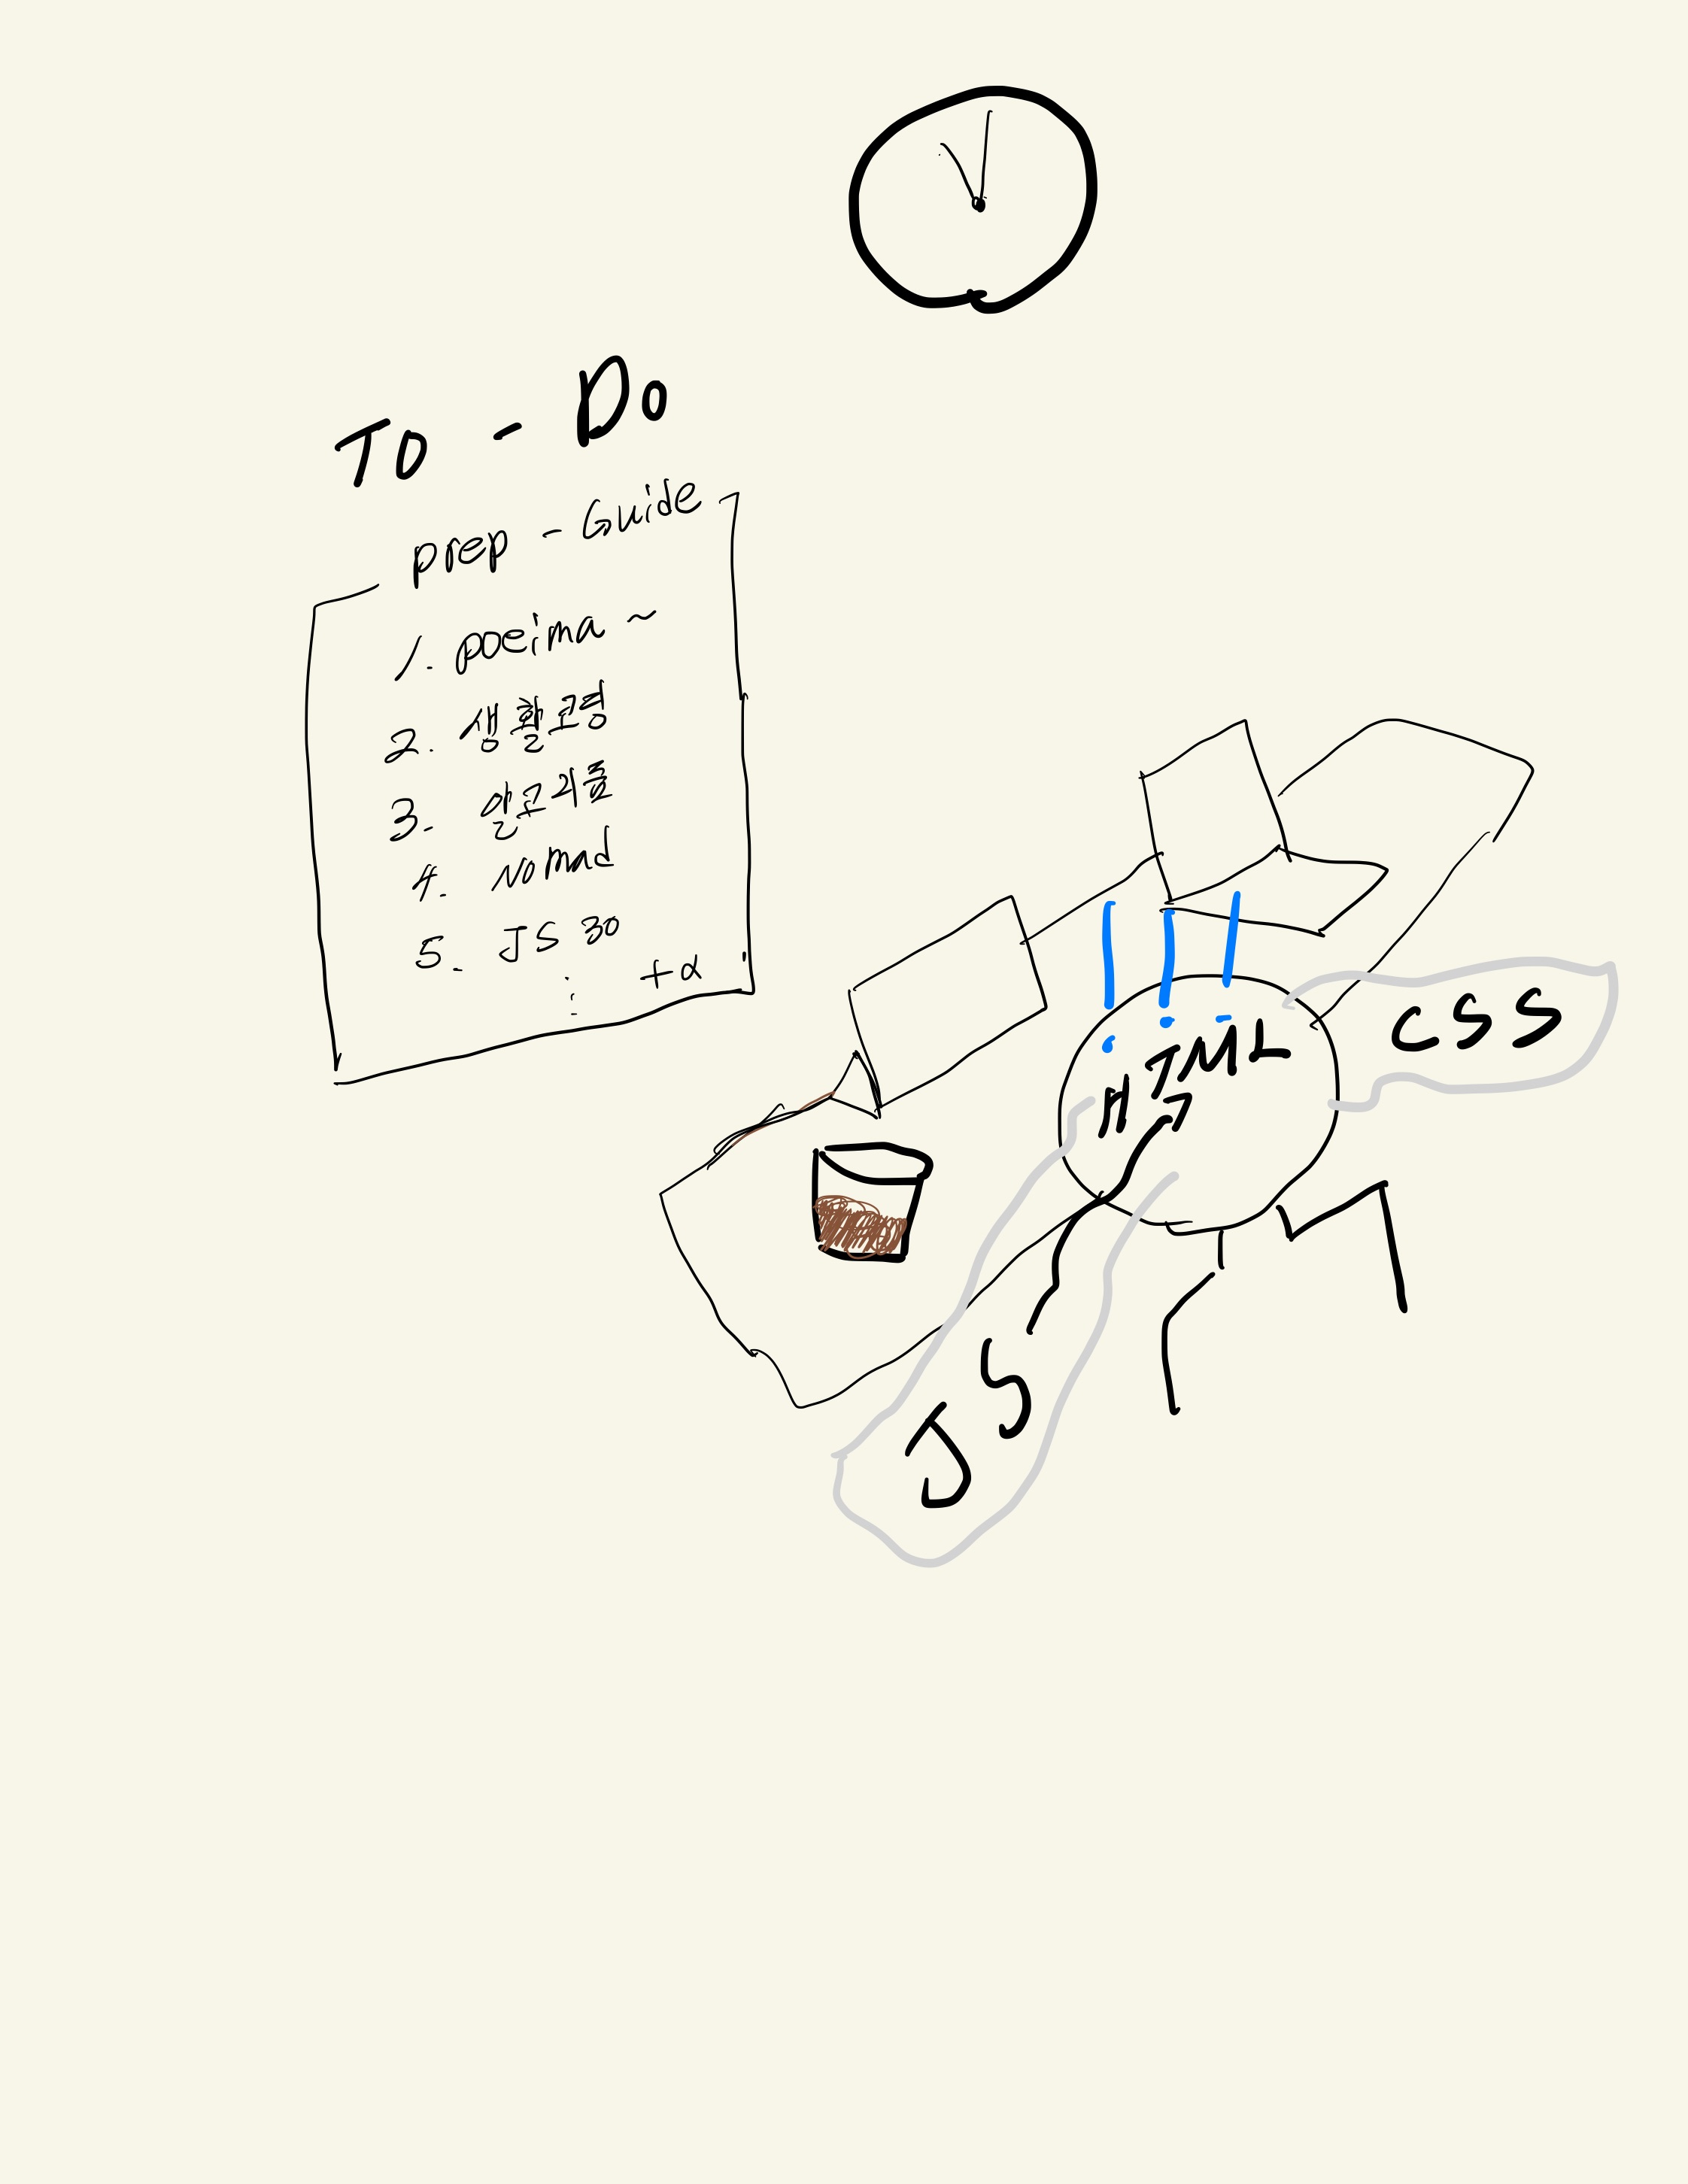 To - Do
prep - Guide
1. poeima ~
2. 생활코딩
3. 알고리즘
4. Nomad
5. JS 30
+α
HTML
CSS
JS